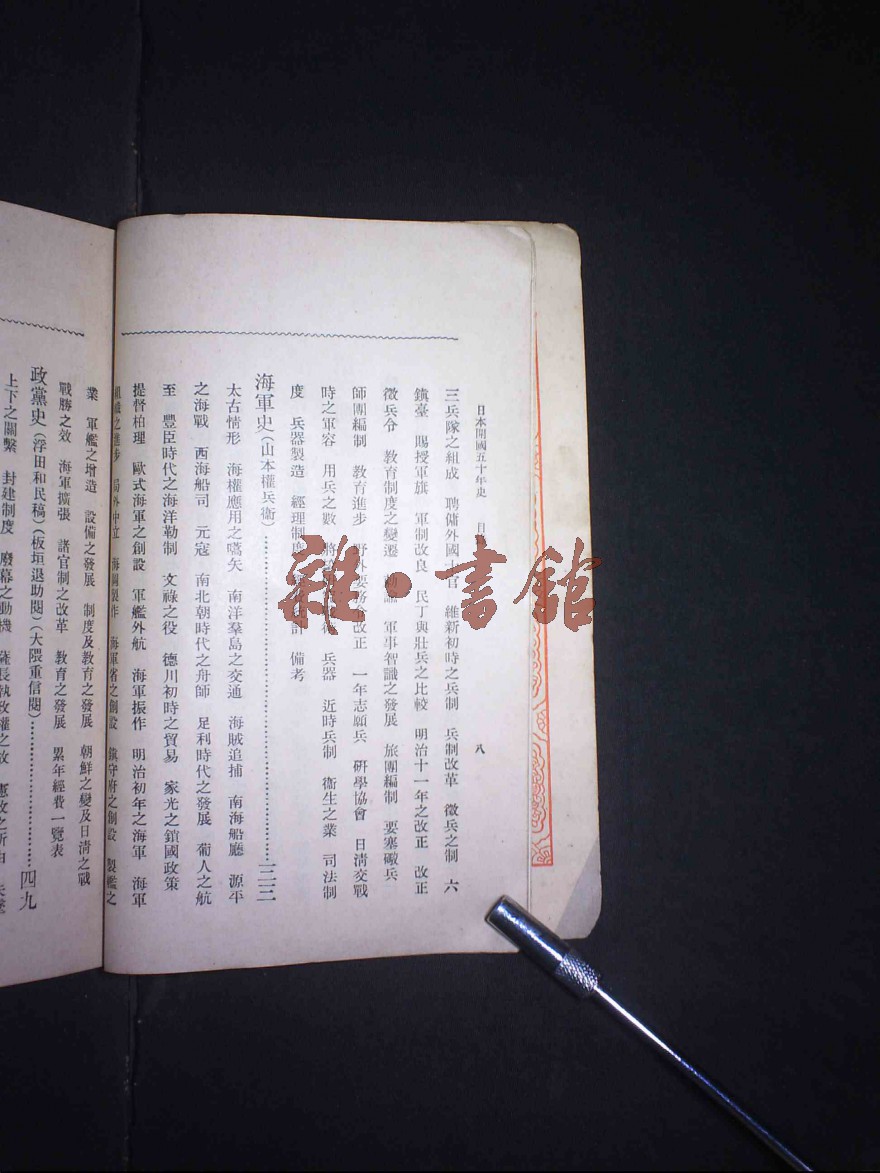 日本開國五十年史 目 八
三兵隊之組成 聘傭外國士官 維新初時之兵制 兵制改革 徵兵之制 六
鎮臺 賜授軍旗 軍制改良 民丁與壯兵之比較 明治十一年之改正 改正
徵兵令 教育制度之變遷 勅諭 軍事智識之發展 旅團編制 要塞礮兵
師團編制 教育進步 野外要務令改正 一年志願兵 研學協會 日清交戰
時之軍容 用兵之數 兵器 近時兵制 衞生之業 司法制
度 兵器製造 經理制度 備考
海軍史(山本權兵衞)……三三
太古情形 海權應用之嚆矢 南洋羣島之交通 海賊追捕 南海船廳 源平
之海戰 西海船司 元寇 南北朝時代之舟師 足利時代之發展 葡人之航
至 豐臣時代之海洋勒制 文祿之役 德川初時之貿易 家光之鎖國政策
提督柏理 歐式海軍之創設 軍艦外航 海軍振作 明治初年之海軍 海軍
之進步 局外中立 海圖製作 海軍省之創設 鎮守府之創設 製艦之
業 軍艦之增造 設備之發展 制度及教育之發展 朝鮮之變及日清之戰
戰勝之效 海軍擴張 諸官制之改革 教育之發展 累年經費一覽表
政黨史(浮田和民稿)(板垣退助閱)(大隈重信閱)……四九
上下之關繫 封建制度 廢幕之動機 薩長執政權之故
雜·書館